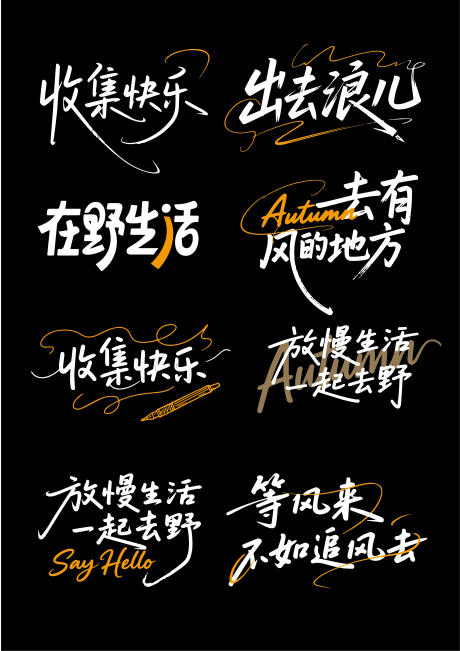 收集快乐
出去浪儿
在野生活
Autumn去有
风的地方
收集快乐
放慢生活
一起去野
Autumn
放慢生活
一起去野
Say Hello
等风来
不如追风去